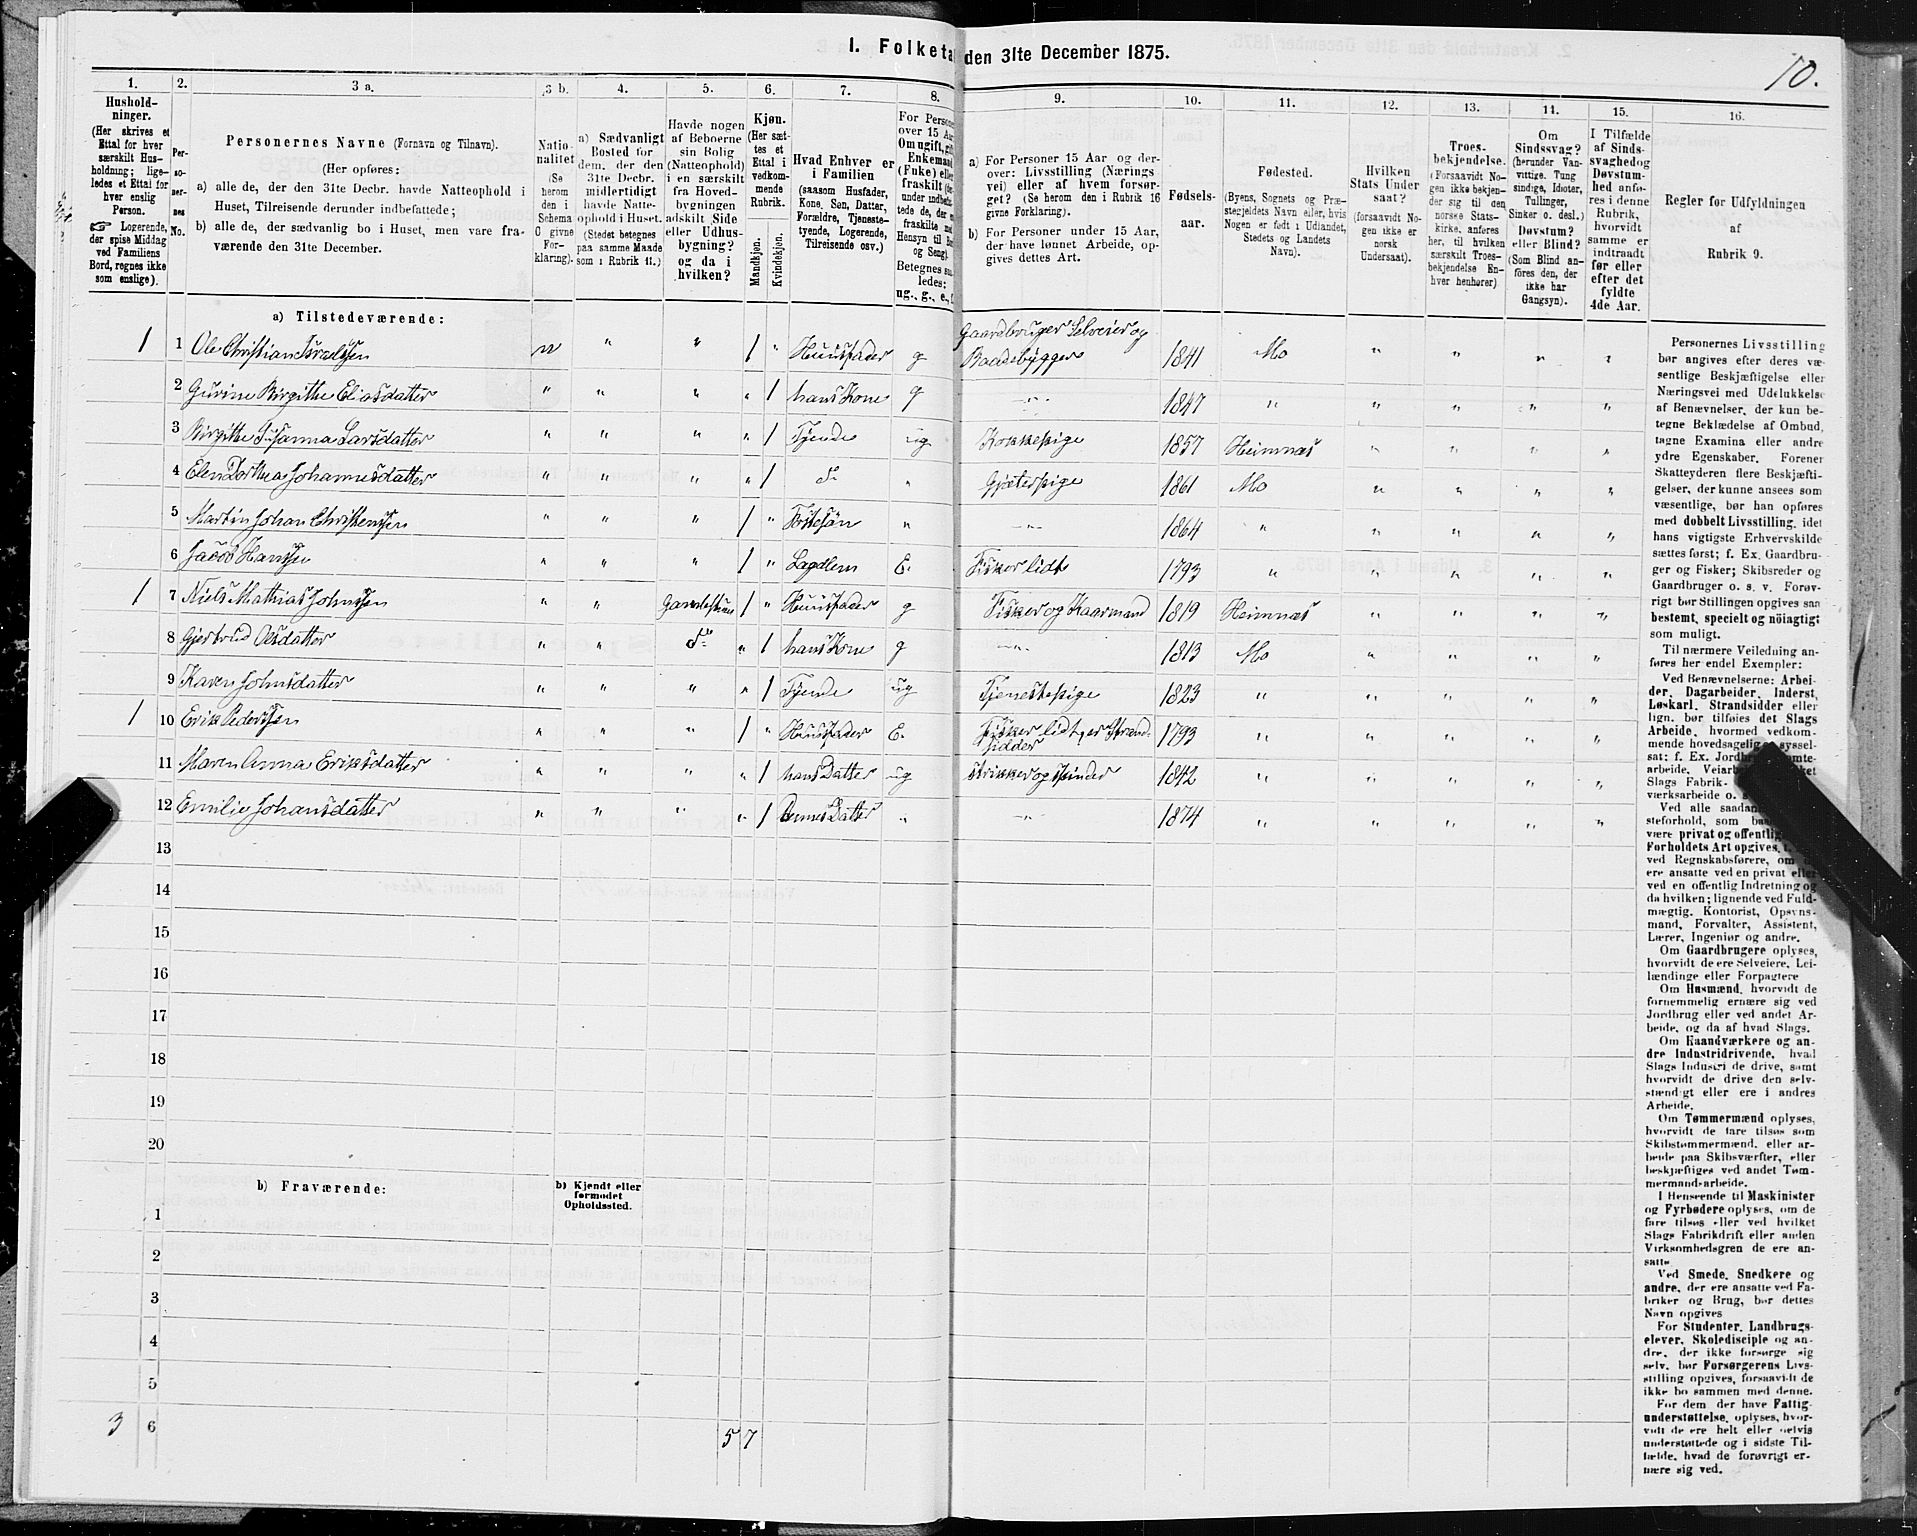 1. Folketal den 31te December 1875.
10.
1.
Hushold-
ninger.
(Her skrives et
Ettal for hver
særskilt Hus-
holdning; lige-
ledes et Ettal for
hver enslig
Person.
Logerende,
der spise Middag
ved Familiens
Bord, regnes ikke
som enslige).
2.
Per-
so-
ner-
nes
No.
3 a.
Personernes Navne (Fornavn og Tilnavn).
(Her opføres:
a) alle de, der den 31te Decbr. havde Natteophold i
Huset, Tilreisende derunder indbefattede;
b) alle de, der sædvanlig bo i Huset, men vare fra-
værende den 31te December.
3 b.
Natio-
nalitet
(Se
herom
den i
Schema
O givne
For-
klaring).
4.
a) Sædvanligt
Bosted for
dem, der den
31te Decbr.
midlertidigt
havde Natte-
ophold i Huset.
(Stedet betegnes
paa samme Maade
som i Rubrik 11.)
5.
Havde nogen
af Beboerne
sin Bolig
(Natteophold)
i en særskilt
fra Hoved-
bygningen
adskilt Side
eller Udhus-
bygning?
og da i
hvilken?
6.
Kjøn.
(Her sæt-
tes et
Ettal i
vedkom-
mende
Rubrik.
Mandkjøn.
Kvindekjøn.
7.
Hvad Enhver er
i Familien
(saasom Husfader,
Kone, Søn, Datter,
Forældre, Tjeneste-
tyende, Logerende,
Tilreisende osv.)
8.
For Persone
over 15 Aar
Om ugift, gift
Enkemand
(Enke) eller
fraskilt
Betegnes saa-
ledes:
ug., g., e., f.
9.
a) For Personer 15 Aar og der-
over: Livsstilling (Nærings-
vei) eller af hvem forsør-
get? (Se herom den i Rubrik 16
givne Forklaring).
b) For Personer under 15 Aar,
der have lønnet Arbeide, op-
gives dettes Art.
10.
Fødsels-
aar.
11.
Fødested.
(Byens, Sognets og Præ-
stegjeldets Navn eller, hvis
Nogen er født i Udlandet,
Stedets og Landets
Navn).
12.
Hvilken
Stats Under
saat?
(forsaavidt No-
gen ikke er
norsk
Undersaat).
13.
Troes-
bekjendelse.
(Forsaavidt No-
gen ikke bekjen-
der sig til den
norske Stats-
kirke, anføres
her, til hvilken
særskilt Troes-
bekjendelse En-
hver henhører)
14.
Om
Sindssvag?
(herunder Van-
vittige, Tung
sindige, Idioter,
Tullinger,
Sinker o. desl.)
Døvstum?
eller Blind?
(Som Blind an-
føres den, der
ikke har
Gangsyn).
15.
I Tilfælde
af Sinds-
svaghed og
Døvstum-
hed anfø-
res i denne
Rubrik,
hvorvidt
samme er
indtraadt
før eller
efter det
fyldte
4de Aar.
16.
Regler for Udfyldningen
af
Rubrik 9.
a) Tilstedeværende:
1 1 Ole Christian Israelssen n " " 1 " Huusfader g Gaardbruger Selveier og Baadebygger 1841 Mo " " " "
2 Gurine Birgithe Eliasdatter " " " " 1 hans Kone g " 1847 " " " " "
3 Birgithe Susanna Larsdatter " " " " 1 Tjende ug Kokkepige 1857 Hemnæs " " " "
4 Elen Dorthea Johannesdatter " " " " 1 d° " Gjæterpige 1861 Mo " " " "
5 Martin Johan Christenssen " " " 1 " Fostersøn " " 1864 " " " " "
6 Jacob Hanssen " " " 1 " Lægdlem E. Fisker lidt 1793 " " " " "
1 7 Niels Mathias Johnssen " " 1 " Huusfader g Fisker og Kaarmand 1819 Hemnæs " " " "
8 Gjertrud Olsdatter " " d° " 1 hans Kone g " 1813 Mo " " " "
9 Karen Johnsdatter " " " " 1 Tjende ug Tjenestepige 1823 " " " " "
1 10 Erik Pederssen " " " 1 " Huusfader E. Fisker lidt, er Strandsidder 1793 " " " " "
11 Maren Anna Eriksdatter " " " " 1 hans Datter ug strikker og spinder 1842 " " " " "
12 Emilie Johansdatter " " " " 1 Datter " " 1874 " " " " "
13
14
15
16
17
18
19
20
b) Fraværende:
b) Kjendt eller
formodet
Opholdssted.
1
2
3
4
5
3 6 5 7
Personernes Livsstilling
bør angives efter deres væ-
sentlige Beskjæftigelse eller
Næringsvei med Udelukkelse
af Benævnelser, der kun be-
tegne Beklædelse af Ombud,
tagne Examina eller andre
ydre Egenskaber. Forener
Skatteyderen flere Beskjæfti-
gelser, der kunne ansees som
væsentlige, bør han opføres
med dobbelt Livsstilling, idet
hans vigtigste Erhvervskilde
sættes først; f. Ex. Gaardbru-
ger og Fisker; Skibsreder og
Gaardbruger o. s. v. Forøv-
rigt bør Stillingen opgives saa
bestemt, specielt og nøiagtigt
som muligt.
Til nærmere Veiledning an-
føres her endel Exempler:
Ved Benævnelserne: Arbei-
der, Dagarbeider, Inderst,
Løskarl, Strandsidder eller
lign. bør tilføies det Slags
Arbeide, hvormed vedkom-
mende hovedsagelig syssel-
sat; f. Ex.
Slags Fabrik-
værksarbeide o.
Ved alle saadan
steforhold, som
være privat og offentlig
Forholdets Art opgives,
ved Regnskabsførere, om
ere ansatte ved en privat eller
ved en offentlig Indretning og
da hvilken; lignende ved Fuld-
mægtig, Kontorist, Opsyns-
mand, Forvalter, Assistent,
Lærer, Ingeniør og andre.
Om Gaardbrugere oplyses,
hvorvidt de ere Selveiere, Lei-
lændinge eller Forpagtere
Om Husmænd, hvorvidt de
fornemmelig ernære sig ved
Jordbrug eller ved andet Ar-
beide, og da af hvad Slags.
Om Haandværkere og an-
dre Industridrivende, hvad
Slags Industri de drive, samt
hvorvidt de drive den selv-
stændigt eller ere i andres
Arbeide.
Om Tømmermænd oplyses,
hvorvidt de fare tilsøs som
Skibstømmermænd, eller ar-
beide paa Skibsværfter, eller
beskjæftiges ved andet Tøm-
mermandsarbeide.
I Henseende til Maskinister
og Fyrbødere oplyses, om de
fare tilsøs eller ved hvilket
Slags Fabrikdrift eller anden
Virksomhedsgren de ere an-
satte
Ved Smede, Snedkere og
andre, der ere ansatte ved Fa-
briker og Brug, bør dettes
Navn opgives
For Studenter, Landbrugs-
elever, Skoledisciple og an-
dre, der ikke forsørge sig
selv, bør Forsørgerens Livs-
stilling opgives, forsaavidt de
ikke bo sammen med denne.
For dem, der have Fattig-
understøttelse, oplyses, hvor-
vidt de ere helt eller delvis
understøttede og i sidste Til-
fælde, hvad de forøvrigt er-
nære sig ved.